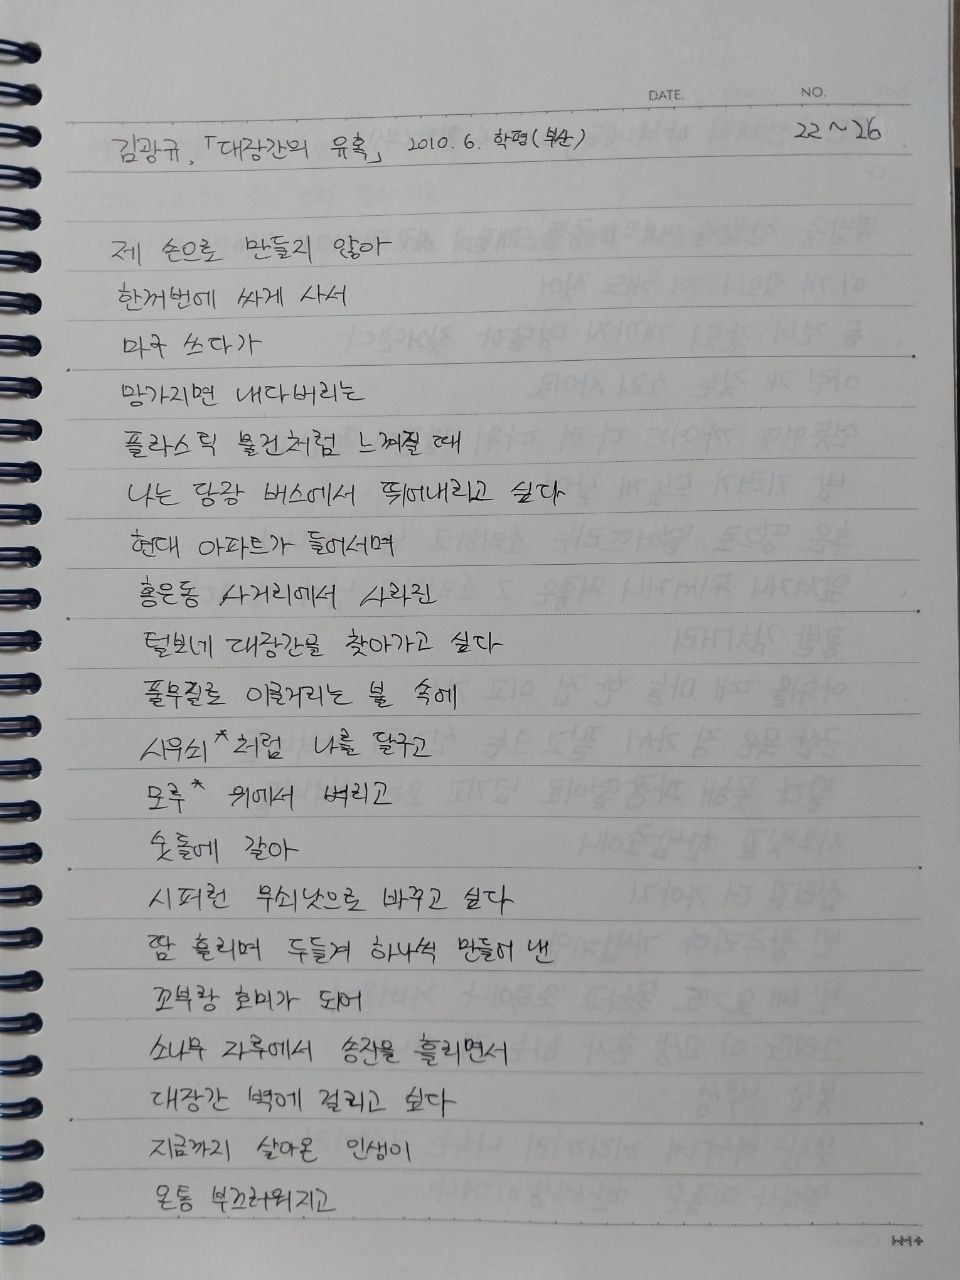 DATE. NO.
22~26
김광규, 「대장간의 유혹」 2010. 6. 학평(부산)
제 손으로 만들지 않아
한꺼번에 싸게 사서
마구 쓰다가
망가지면 내다버리는
플라스틱 물건처럼 느껴질 때
나는 당장 버스에서 뛰어내리고 싶다
현대 아파트가 들어서며
홍은동 사거리에서 사라진
털보네 대장간을 찾아가고 싶다
풀무질로 이글거리는 불 속에
시우쇠*처럼 나를 달구고
모루* 위에서 벼리고
숫돌에 갈아
시퍼런 무쇠낫으로 바꾸고 싶다
땀 흘리며 두들겨 하나씩 만들어 낸
꼬부랑 호미가 되어
소나무 자루에서 송진을 흘리면서
대장간 벽에 걸리고 싶다
지금까지 살아온 인생이
온통 부끄러워지고